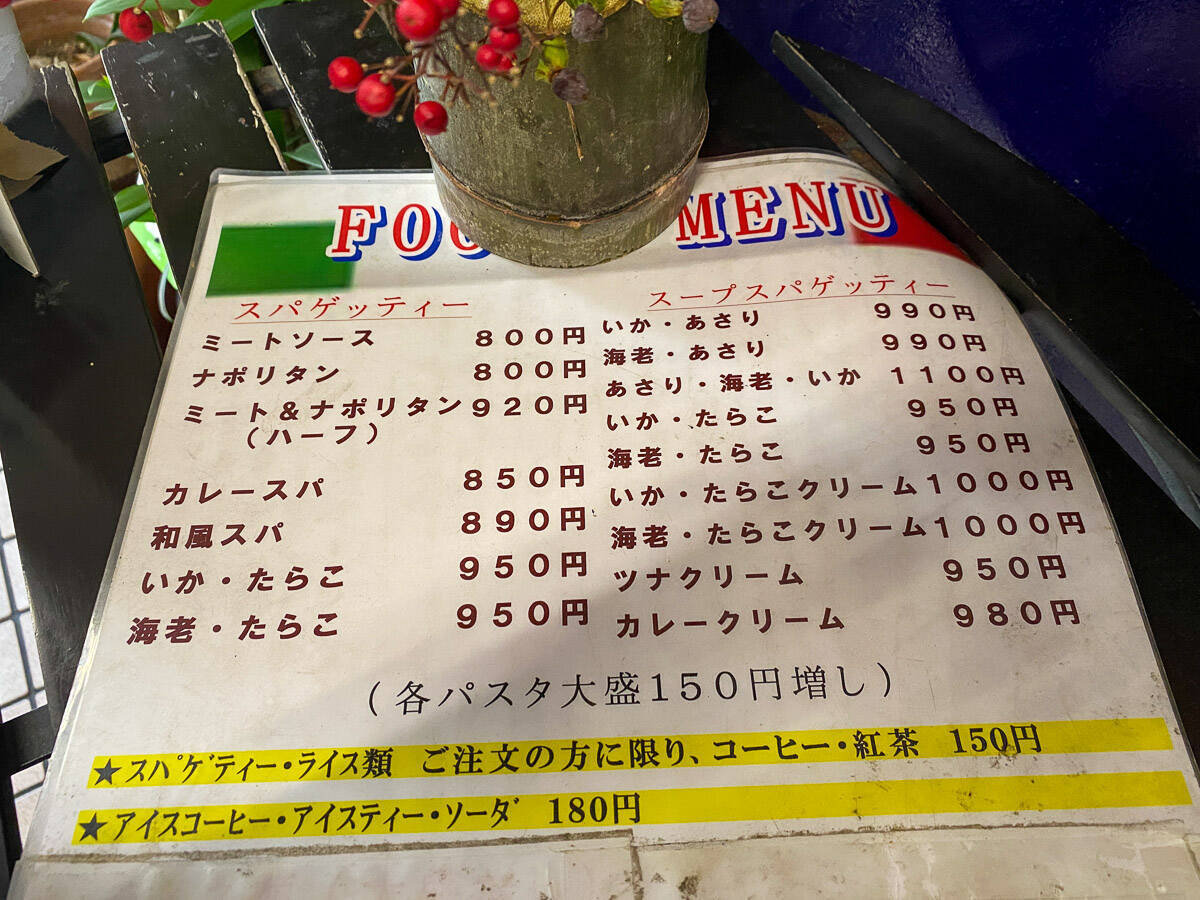 FOO MENU
スパゲッティー
ミートソース 800円
ナポリタン 800円
ミート&ナポリタン 920円
(ハーフ)
カレースパ 850円
和風スパ 890円
いか・たらこ 950円
海老・たらこ 950円
スープスパゲッティー
いか・あさり 990円
海老・あさり 990円
あさり・海老・いか 1100円
いか・たらこ 950円
海老・たらこ 950円
いか・たらこクリーム 1000円
海老・たらこクリーム 1000円
ツナクリーム 950円
カレークリーム 980円
(各パスタ大盛150円増し)
★スパゲティー・ライス類 ご注文の方に限り、コーヒー・紅茶 150円
★アイスコーヒー・アイスティー・ソーダ 180円